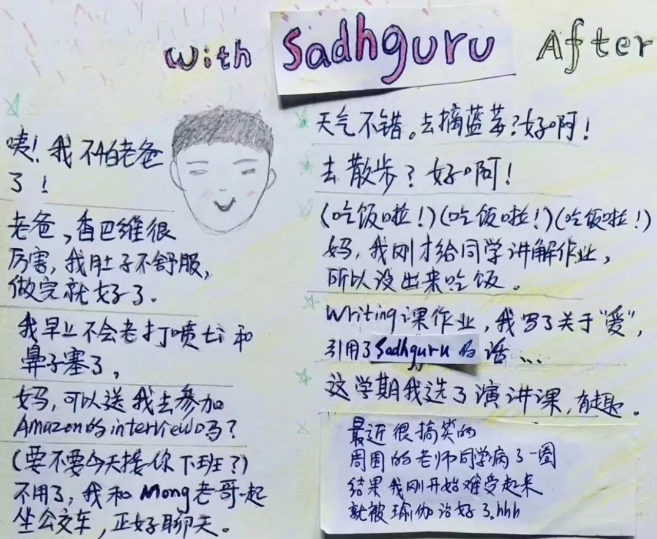 with Sadhguru After
咦!我不怕老爸
了!
老爸,香巴维很
厉害,我肚子不舒服,
做完就好了.
我早上不会老打喷ti和
鼻子塞了,
妈,可以送我去参加
Amazon的interview吗?
(要不要今天接你下班?)
不用了,我和Mong老哥一起
坐公交车,正好聊天。
天气不错。去摘蓝莓?好啊!
去散步?好啊!
(吃饭啦!)(吃饭啦!)(吃饭啦!)
妈,我刚才给同学讲解作业,
所以没出来吃饭。
Writing课作业,我写了关于“爱”,
引用了Sadhguru的话...
这学期我选了演讲课,有趣。
最近很搞笑的
周围的老师同学病了一圈
结果我刚开始难受起来
就被瑜伽治好了.hhh